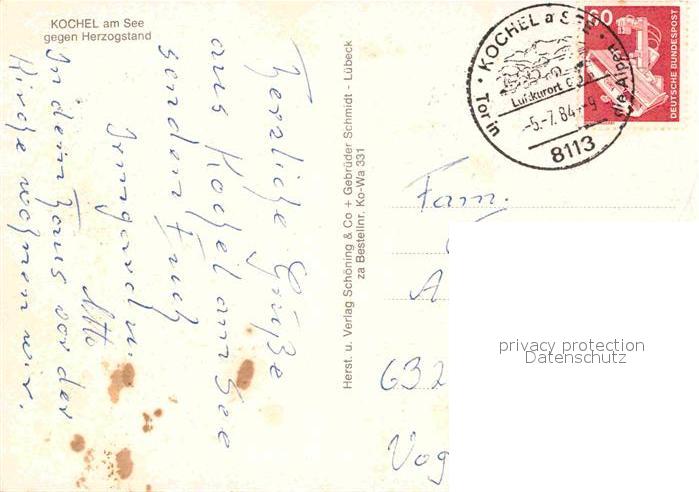 KOCHEL am See
gegen Herzogstand
Herzliche Grüße
aus Kochel am See
senden Euch
Irmgard u.
Otto
In dem Haus vor der
Kirche wohnen wir.
Herst. u. Verlag Schöning & Co + Gebrüder Schmidt - Lübeck
za Bestellnr. Ko-Wa 331
KOCHEL a. SEE
Luftkurort
-5.-7.84.-9
Tor in die Alpen
8113
60
DEUTSCHE BUNDESPOST
Fam.
A
632
Vog
privacy protection
Datenschutz